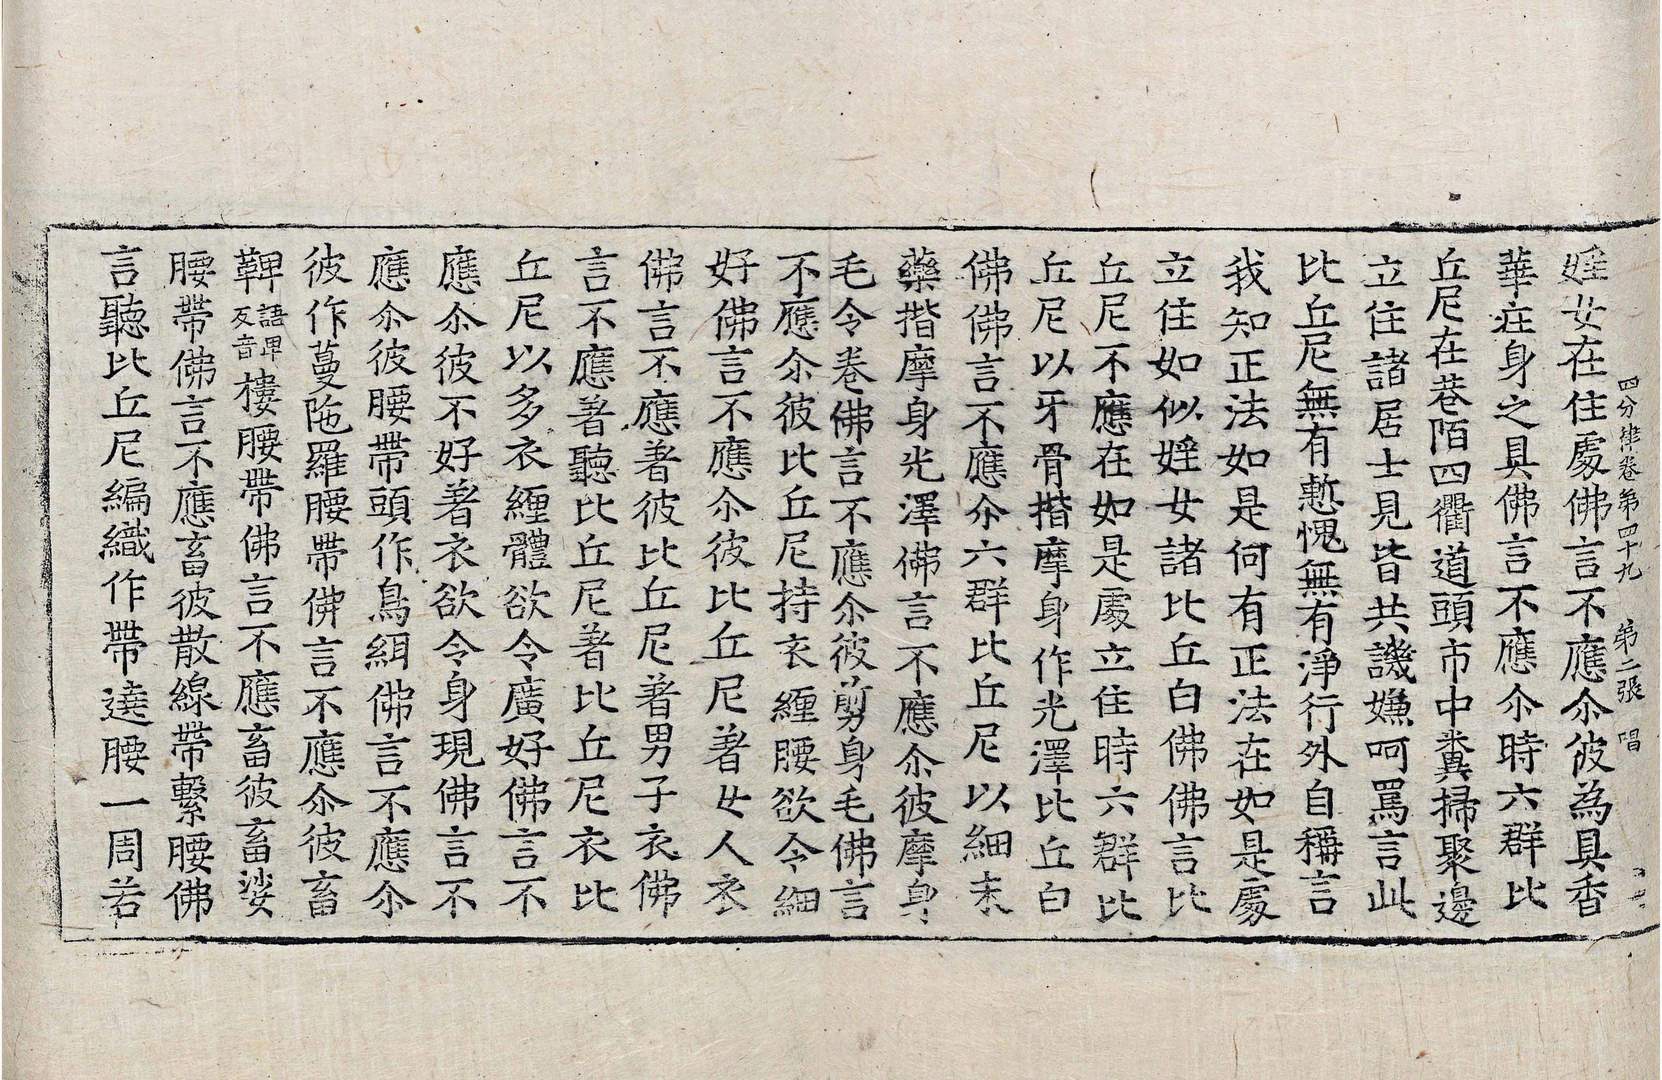 四分律卷第四十九 第二張 唱
婬女在住處佛言不應尒彼為具香
華莊身之具佛言不應尒時六群比
丘尼在巷陌四衢道頭市中糞掃聚邊
立住諸居士見皆共譏嫌呵罵言此
比丘尼無有慙愧無有淨行外自稱言
我知正法如是何有正法在如是處
立住如似婬女諸比丘白佛佛言比
丘尼不應在如是處立住時六群比
丘尼以牙骨揩摩身作光澤比丘白
佛佛言不應尒六群比丘尼以細末
藥揩摩身光澤佛言不應尒彼摩身
毛令卷佛言不應尒彼剪身毛佛言
不應尒彼比丘尼持衣纏腰欲令細
好佛言不應尒彼比丘尼著女人衣
佛言不應著彼比丘尼著男子衣佛
言不應著聽比丘尼著比丘尼衣比
丘尼以多衣纏體欲令廣好佛言不
應尒彼不好著衣欲令身現佛言不
應尒彼腰帶頭作鳥緷佛言不應尒
彼作蔓陁羅腰帶佛言不應尒彼畜
鞞語卑反音樓腰帶佛言不應畜彼畜娑
腰帶佛言不應畜彼散線帶繫腰佛
言聽比丘尼編織作帶遶腰一周若